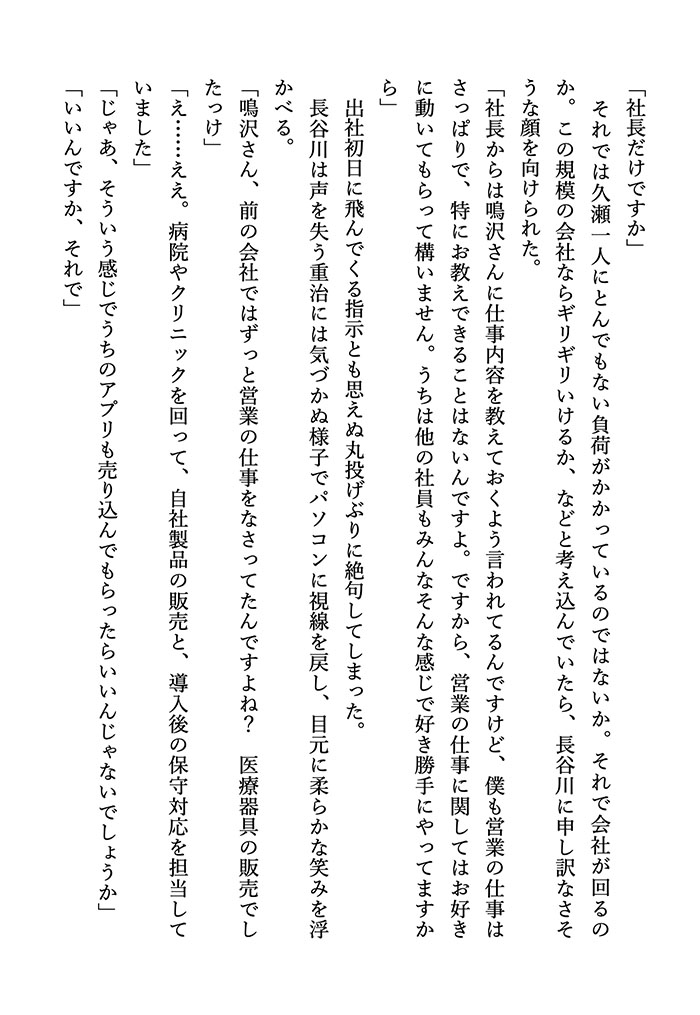 「社長だけですか」
　それでは久瀬一人にとんでもない負荷がかかっているのではないか。それで会社が回るの
か。この規模の会社ならギリギリいけるか、などと考え込んでいたら、長谷川に申し訳なさそ
うな顔を向けられた。
「社長からは鳴沢さんに仕事内容を教えておくよう言われてるんですけど、僕も営業の仕事は
さっぱりで、特にお教えできることはないんですよ。ですから、営業の仕事に関してはお好き
に動いてもらって構いません。うちは他の社員もみんなそんな感じで好き勝手にやってますか
ら」
　出社初日に飛んでくる指示とも思えぬ丸投げぶりに絶句してしまった。
　長谷川は声を失う重治には気づかぬ様子でパソコンに視線を戻し、目元に柔らかな笑みを浮
かべる。
「鳴沢さん、前の会社ではずっと営業の仕事をなさってたんですよね？　医療器具の販売でし
たっけ」
「え……ええ。病院やクリニックを回って、自社製品の販売と、導入後の保守対応を担当して
いました」
「じゃあ、そういう感じでうちのアプリも売り込んでもらったらいいんじゃないでしょうか」
「いいんですか、それで」